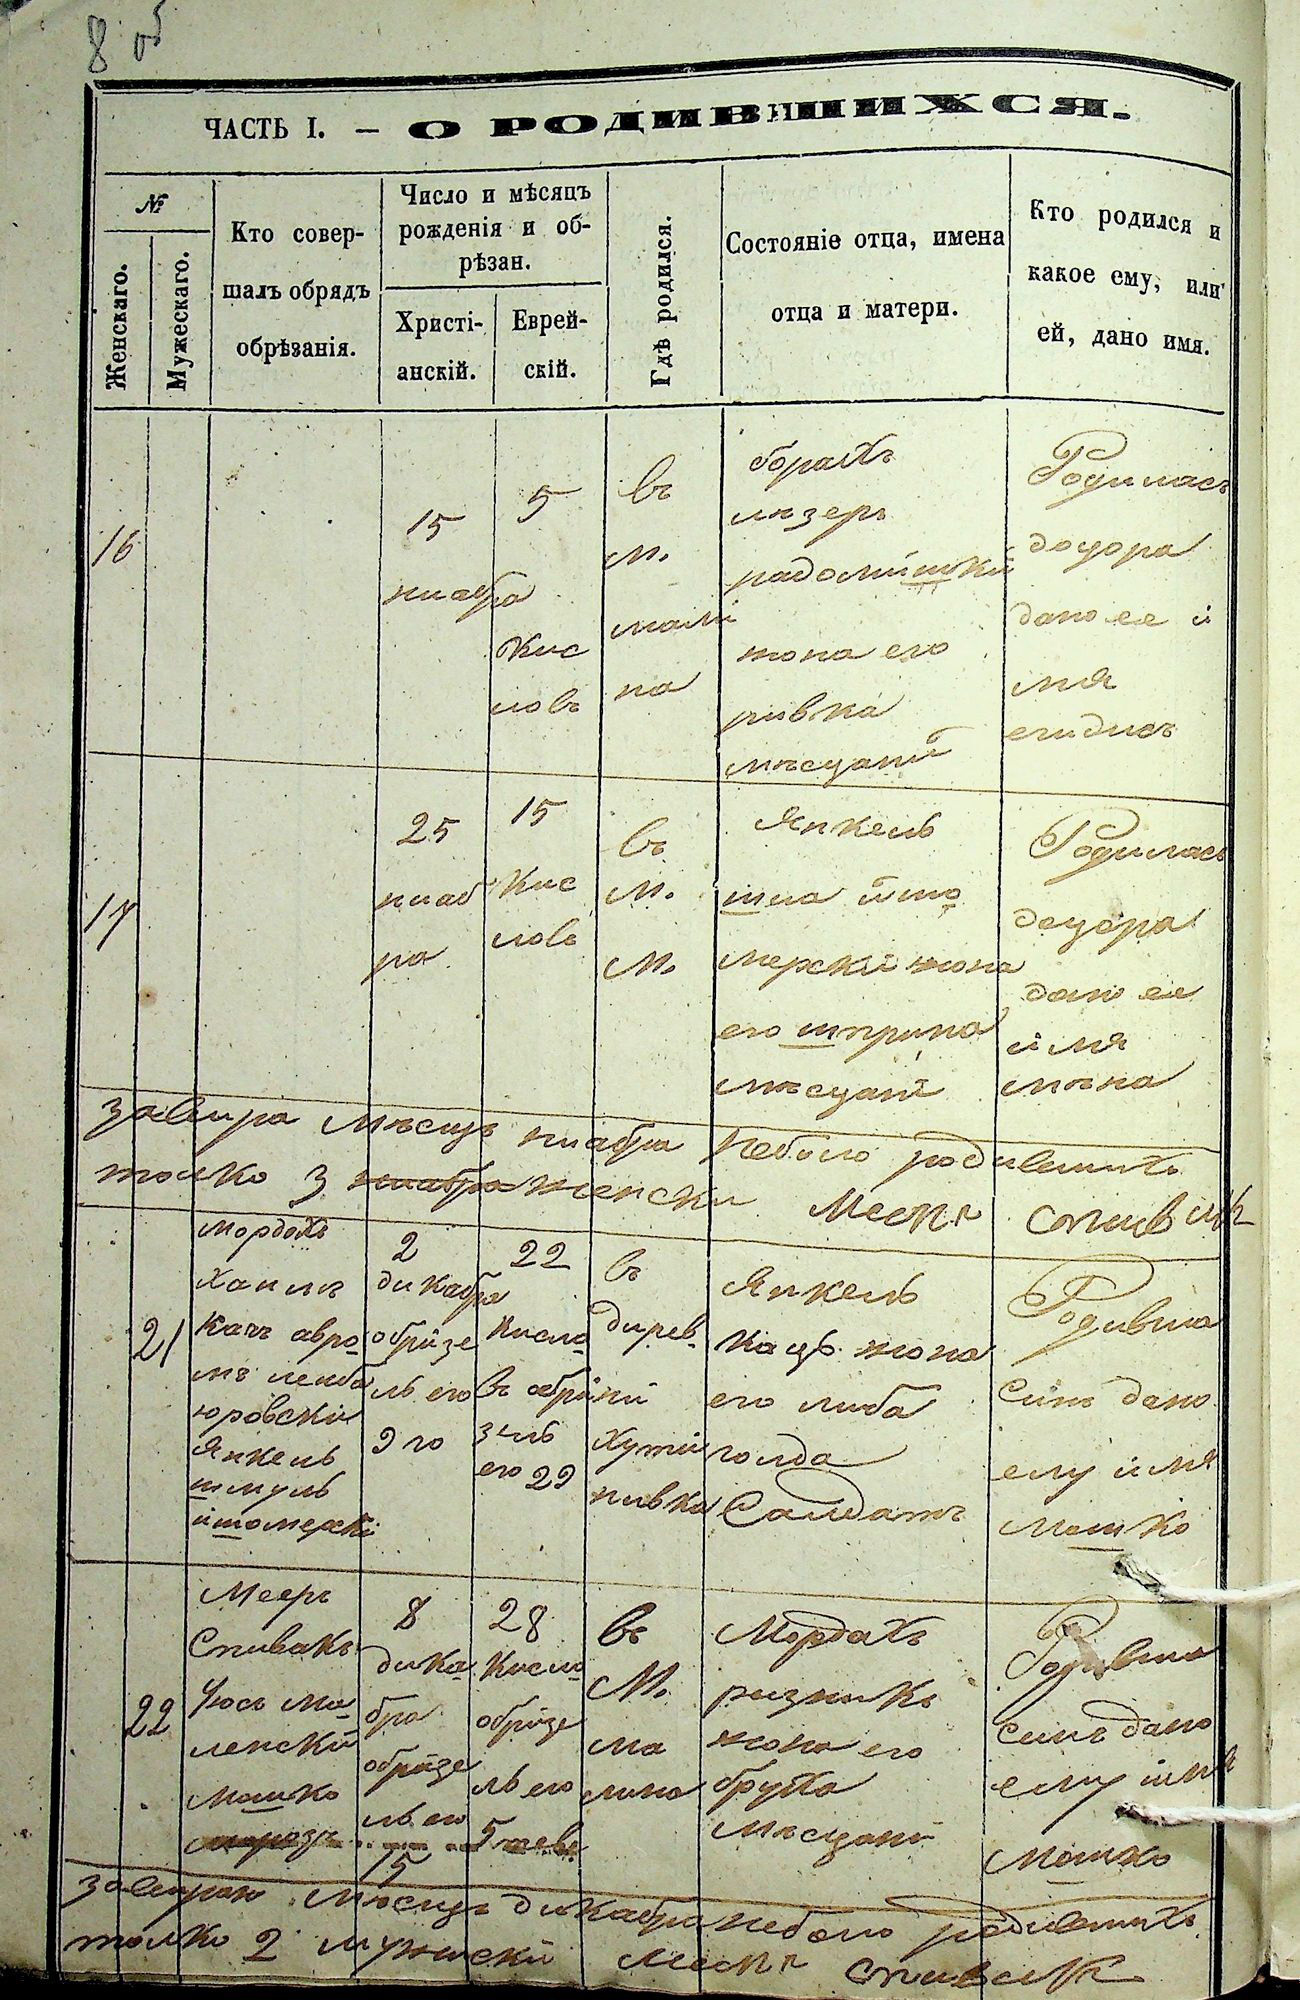 8 об
ЧАСТЬ I. — О РОДИВШИХСЯ.
№
Женскаго.
Мужескаго.
Кто совер-
шалъ обрядъ
обрѣзанія.
Число и мѣсяцъ
рожденія и об-
рѣзан.
Христі-
анскій.
Еврей-
скій.
Гдѣ родился.
Состояніе отца, имена
отца и матери.
Кто родился и
какое ему, или
ей, дано имя.
16
15
ниабра
5
Кис
ловъ
въ
м.
мали
на
борахъ
лѣзеръ
радомишкій
жона его
ривка
мѣсцаній
Родиласъ
доцора
дано ее и
мя
17
25
ниаб
ра
15
Кис
ловъ
въ
м.
м.
Янкель
шла итo
мерскій жона
его шпринa
мѣсцаній
Родиласъ
доцора
дано ее
имя
завира мѣсицъ ниабра неболо родившихъ
толко 3 женски Меєръ спивакъ
21
мордохъ
Хаимъ
Кацъ авро
мъ лейба
юровскій
Янкель
шмуль
итомерскій
2
дикабра
обризе
ль его
9го
22
кисло
въ обри
зель
его 29
въ
дирев
ни
Хути
нивка
Янкель
Кацъ жона
его либа
голда
Салдатъ
Родився
синъ дано
ему имя
мошко
22
Мееръ
Спивакъ
Иосъ ма
ленскій
мошко
8
дика
бра
обризе
ль его
15
28
кисло
обризе
ль его
5 теве
въ
М.
ма
лина
Мордахъ
ризникъ
жона его
бруха
мѣсцаній
Родився
синъ дано
ему имя
мошко
завираю мѣсицъ дикабра неболо родившихъ
толко 2 мужискій Меєръ спивакъ